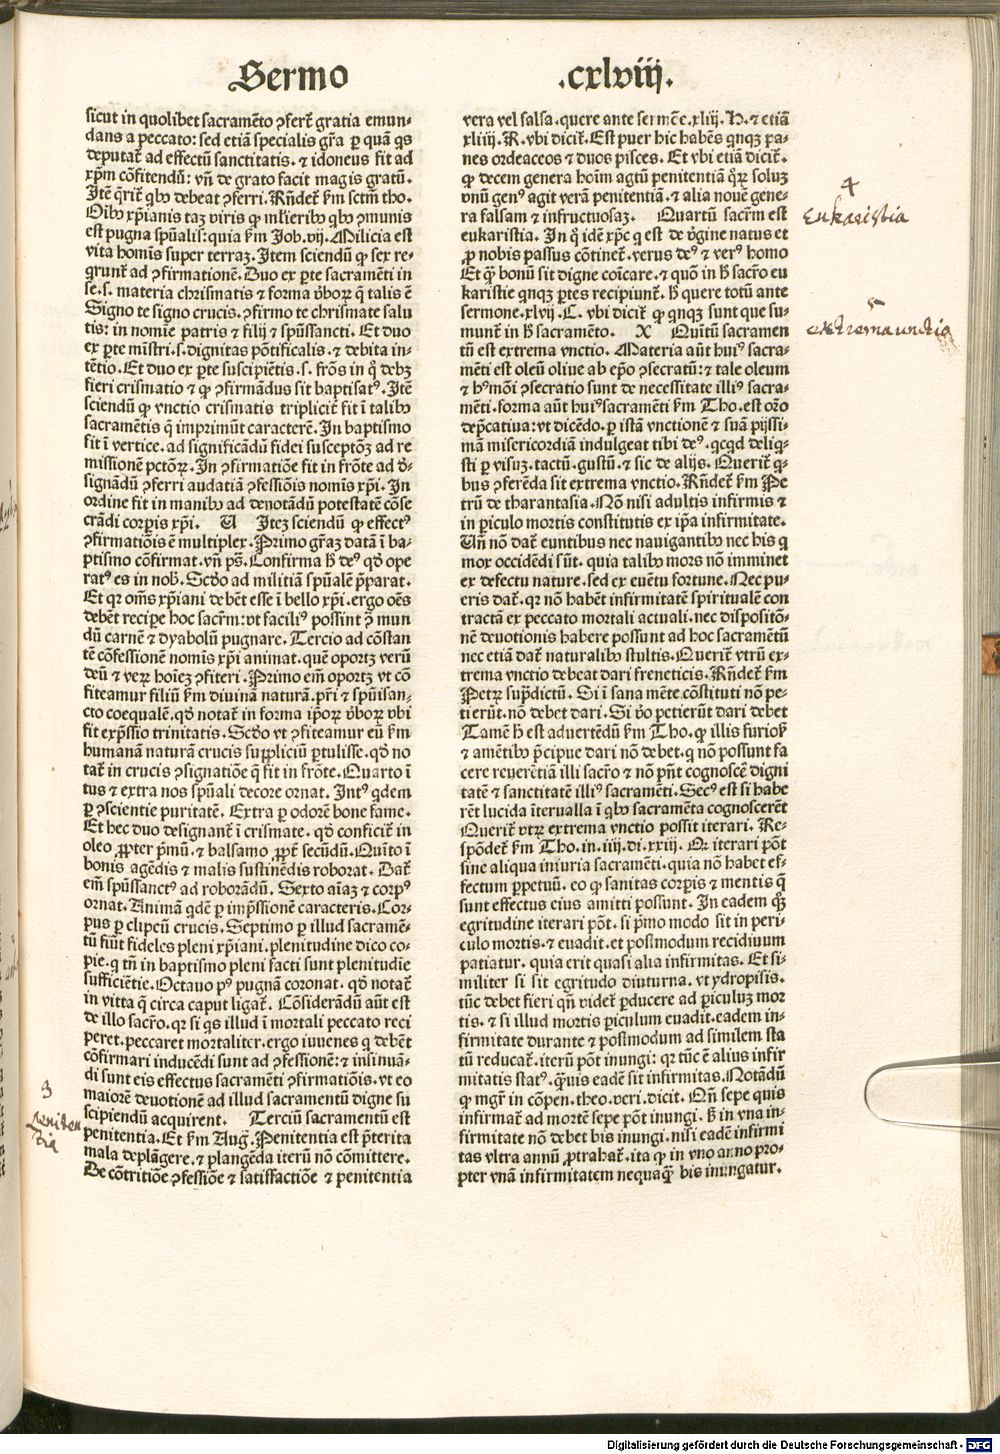 Sermo .cxlviij.
sicut in quolibet sacramēto ꝯferᷣt gratia emun-
dans a peccato: sed etiā specialis gr̄a ꝑ quā q̇s
deputaᷣt ad effectū sanctitatis. ⁊ idoneus fit ad
xp̄m cōfitendū: vn̄ de grato facit magis gratū.
Itē q̄riᷣt qͥbꝫ debeat ꝯferri. Rn̄deᷣt ẜm sctm̄ tho.
Oībꝫ xp̄ianis taꝫ viris qͣ mľieribꝫ qͥbꝫ ꝯmunis
est pugna spūalis: quia ẜm Iob. vij. Milicia est
vita homīs super terraꝫ. Item sciendū ꝙ sex re-
qrunᷣt ad ꝯfirmationē. Duo ex ꝑte sacramēti in
se. s. materia chrismatis ⁊ forma v̓boꝝ q̄ talis ē
Signo te signo crucis. ꝯfirmo te chrismate salu
tis: in nomīe patris ⁊ filij ⁊ spūssancti. Et duo
ex ꝑte mīstri. s. dignitas pōtificalis. ⁊ debita in-
tētio. Et duo ex ꝑte suscipiētis. s. frōs in q̇ debꝫ
fieri crismatio ⁊ ꝙ ꝯfirmādus sit baptisatꝰ. Itē
sciendū ꝙ vnctio crismatis tripliciᷣt fit ī talibꝫ
sacramētis q̄ imprimūt caracterē. In baptismo
fit ī vertice. ad significādū fidei susceptōꝫ ad re
missionē pctōꝝ. In ꝯfirmatiōe fit in frōte ad d̓-
signādū ꝯferri audatiā ꝯfessiōis nomīs xp̄i. In
ordine fit in manibꝫ ad denotādū potestatē cōse
crādi corꝑis xp̄i. U Iteꝫ sciendū ꝙ effectꝰ
ꝯfirmatiōis ē multiplex. Primo gr̄aꝫ datā ī ba-
ptismo cōfirmat. vn̄ pš. Confirma h̄ deꝰ qd̓ ope
ratꝰ es in nob̓. Scd̓o ad militiā spūalē p̄parat.
Et qꝛ om̄s xp̄iani debēt esse ī bello xp̄i. ergo oēs
debēt reciꝑe hoc sacrm̄: vt faciliꝰ possint ꝯ̄ mun
dū carnē ⁊ dyabolū pugnare. Tercio ad cōstan
tē cōfessionē nomīs xp̄i animat. quē oportꝫ verū
deū ⁊ veꝝ hoīeꝫ ꝯfiteri. Primo em̄ oportꝫ vt cō
fiteamur filiū ẜm diuinā naturā. pr̄i ⁊ spūisan-
cto coequalē. qd̓ notaᷣt in forma ip̄oꝝ v̓boꝝ vbi
fit exp̄ssio trinitatis. Scd̓o vt ꝯfiteamur eū ẜm
humanā naturā crucis suppliciū ꝑtulisse. qd̓ no
taᷣt in crucis ꝯsignatiōe q̄ fit in frōte. Quarto ī
tus ⁊ extra nos spūali decore ornat. Intꝰ q̇dem
ꝑ ꝯscientie puritatē. Extra ꝑ odorē bone fame.
Et hec duo designanᷣt ī crismate. qd̓ conficiᷣt in
oleo ꝓpter p̄mū. ⁊ balsamo ꝓpᷣt secūdū. Quīto ī
bonis agēdis ⁊ malis sustinēdis roborat. Daᷣt
em̄ spūssanctꝰ ad roborādū. Sexto aīaꝫ ⁊ corpꝰ
ornat. Animā q̇dē ꝑ imp̄ssionē caracteris. Cor-
pus ꝑ clipeū crucis. Septimo ꝑ illud sacramē-
tū fiūt fideles pleni xp̄iani. plenitudine dico co-
pie. q tn̄ in baptismo pleni facti sunt plenitudīe
sufficiētie. Octauo pꝰ pugnā coronat. qd̓ notaᷣt
in vitta q̄ circa caput ligaᷣt. Cōsiderādū aūt est
de illo sacr̄o. qꝛ si q̇s illud ī mortali peccato reci
peret. peccaret mortaliter. ergo iuuenes q̇ debēt
cōfirmari inducēdi sunt ad ꝯfessionē: ⁊ insinuā-
di sunt eis effectus sacramēti ꝯfirmatiōis. vt eo
maiorē deuotionē ad illud sacramentū digne su
scipiendū acquirent. Terciū sacramentū est
penitentia. Et ẜm Aug̓. Penitentia est p̄terita
mala deplāgere. ⁊ plangēda iterū nō cōmittere.
De cōtritiōe ꝯfessiōe ⁊ satisfactiōe ⁊ penitentia
3
penitentia
vera vel falsa. quere ante sermēe. xliij. N. ⁊ etiā
xliiij. R. vbi diciᷣt. Est puer hic habēs qnqꝫ pa-
nes ordeaceos ⁊ duos pisces. Et vbi etiā diciᷣt.
ꝙ decem genera hoīm agtū penitentiā qͣꝝ soluꝫ
vnū genꝰ agit verā penitentiā. ⁊ alia nouē gene-
ra falsam ⁊ infructuosaꝫ. Quartū sacrm̄ est
eukaristia. In q̇ idē xp̄c q̇ est de v̓gine natus et
ꝓ nobis passus cōtineᷣt. verus deꝰ ⁊ verꝰ homo
Et qͣ bonū sit digne coīcare. ⁊ quō in h̄ sacr̄o eu
karistie qnqꝫ ꝑtes recipiunᷣt. h̄ quere totū ante
sermone. xlvij. C. vbi diciᷣt ꝙ qnqꝫ sunt que su-
munᷣt in h̄ sacramēto. X Quītū sacramen
tū est extrema vnctio. Materia aūt huiꝰ sacra-
mēti est oleū oliue ab ep̄o ꝯsecratū: ⁊ tale oleum
⁊ hꝰmōi ꝯsecratio sunt de necessitate illiꝰ sacra-
mēti. forma aūt huiꝰ sacramēti ẜm Tho. est oro̅
dep̄catiua: vt dicēdo. ꝑ istā vnctionē ⁊ suā pijssi-
mā misericordiā indulgeat tibi deꝰ. qcqd̓ deliq̇-
sti ꝑ visuꝫ. tactū. gustū. ⁊ sic de alijs. Queriᷣt q̇-
bus ꝯferēda sit extrema vnctio. Rn̄deᷣt ẜm Pe
trū de tharantasia. Nō nisi adultis infirmis ⁊
in ꝑiculo mortis constitutis ex ip̄a infirmitate.
Un̄ nō daᷣt euntibus nec nauigantibꝫ nec his q̇
mox occidēdi sūt. quia talibꝫ mors nō imminet
ex defectu nature. sed ex euētu fortune. Nec pu-
eris daᷣt. qꝛ nō habēt infirmitatē spiritualē con
tractā ex peccato mortali actuali. nec dispositō-
nē deuotionis habere possunt ad hoc sacramētū
nec etiā daᷣt naturalibꝫ stultis. Queriᷣt vtrū ex-
trema vnctio debeat dari freneticis. Rn̄deᷣt ẜm
Petrꝫ sup̄dictū. Si ī sana mēte cōstituti nō pe-
tierūt. nō debet dari. Si v̓o petierūt dari debet
Tamē h̄ est aduertēdū ẜm Tho. ꝙ illis furiosᷣ
⁊ amētibꝫ p̄cipue dari nō debet. q̇ nō possunt fa
cere reuerētiā illi sacr̄o ⁊ nō pn̄t cognoscē digni
tatē ⁊ sanctitatē illiꝰ sacramēti. Secꝰ est si habe
rēt lucida īterualla ī qͥbꝫ sacramēta cognoscerēt
Queriᷣt vtꝝ extrema vnctio possit iterari. Re-
spōdeᷣt ẜm Tho. in. iiij. di. xxiij. Qꝛ iterari pōt
sine aliqua iniuria sacramēti. quia nō habet ef-
fectum ꝑpetuū. eo ꝙ sanitas corꝑis ⁊ mentis q̄
sunt effectus eius amitti possunt. In eadem qͣꝫ
egritudine iterari pōt. si p̄mo modo sit in peri-
culo mortis. ⁊ euadit. et postmodum recidiuum
patiatur. quia erit quasi alia infirmitas. Et si-
militer si sit egritudo diuturna. vt ydropisis.
tūc debet fieri qn̄ videᷣt ꝑducere ad ꝑiculuꝫ mor
tis. ⁊ si illud mortis ꝑiculum euadit. eadem in-
firmitate durante ⁊ postmodum ad similem sta
tū reducaᷣt. iterū pōt inungi: qꝛ tūc ē alius infir
mitatis statꝰ. qͣuis eadē sit infirmitas. Notādū
ꝙ mgr̄ in cōpen. theo. veri. dicit. Qn̄ sepe quis
infirmaᷣt ad mortē sepe pōt inungi. h̄ in vna in-
firmitate nō debet bis inungi. nisi eadē infirmi
tas vltra annū ꝓtrahaᷣt. ita ꝙ in vno anno pro-
pter vnā infirmitatem nequaqͣ bis inungatur.
4
Eukaristia
5
extrema unctio
Digitalisierung gefördert durch die Deutsche Forschungsgemeinschaft - DFG